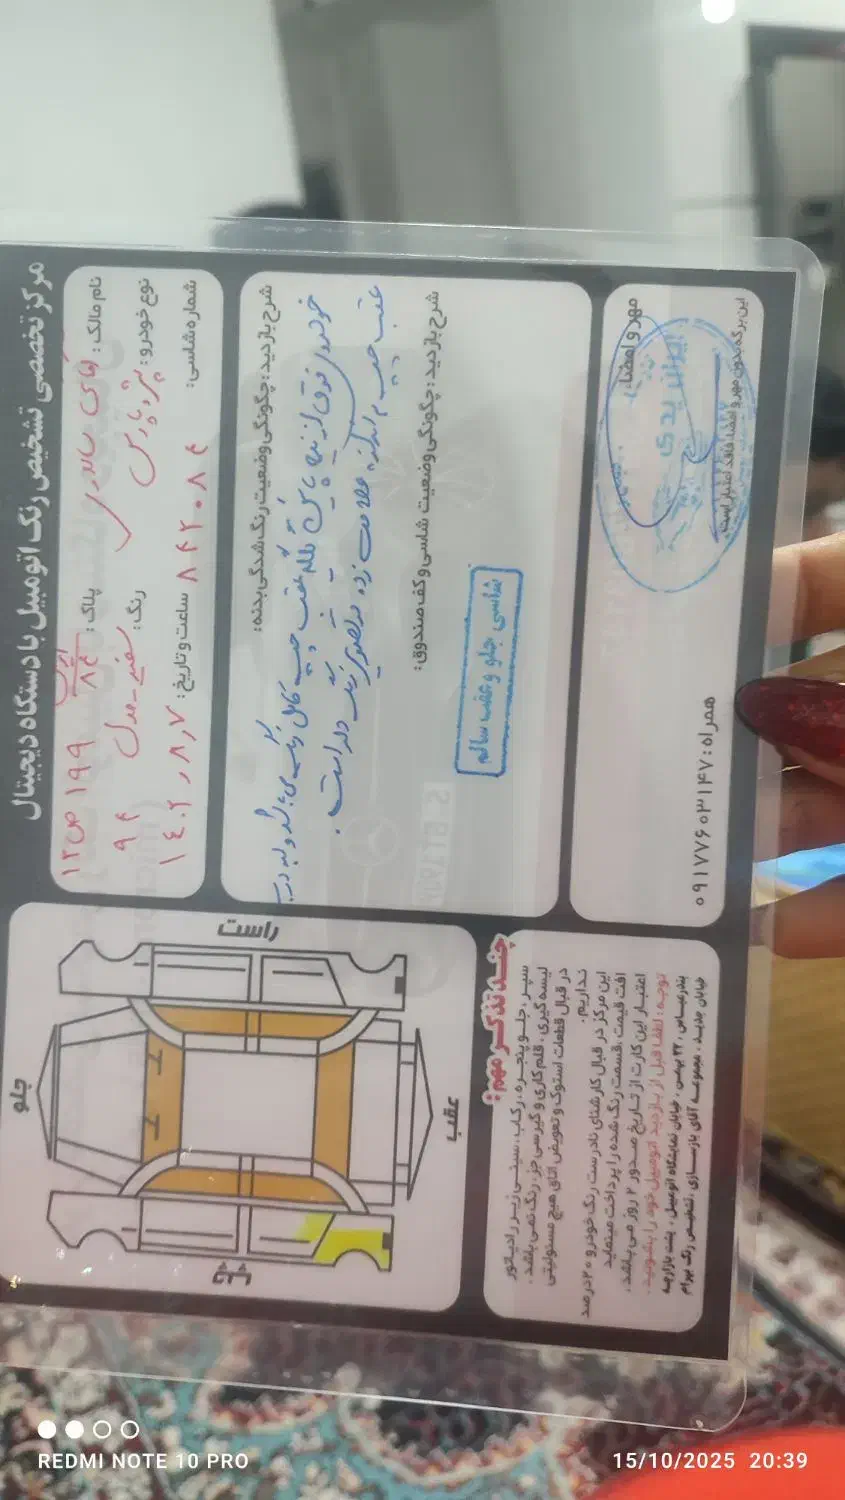 مرکز تخصصی تشخیص رنگ اتومبیل با دستگاه دیجیتال
نام مالک: آقای سالاری پلاک: ۱۲ص۱۹۹ ایران ۸۴
نوع خودرو: پژو پارس رنگ: سفید - مدل ۹۴
شماره شاسی: ۸۴۲۰۸۴ ساعت و تاریخ: ۱۴۰۲٫۸٫۷
شرح بازدید: چگونگی وضعیت رنگ شدگی بدنه:
خودروی فوق از ناحیه گلگیر عقب چپ کامل رنگ می باشد و لبه درب
عقب چپ به اندازه علامت زده در تصویر رنگ دار است.
شرح بازدید: چگونگی وضعیت شاسی و کف صندوق:
شاسی جلو و عقب سالم
مهر و امضاء:
ایزدی
این برگه بدون مهر و امضاء فاقد اعتبار است.
همراه: ۰۹۱۷۷۶۰۳۱۴۷
راست
جلو
عقب
چپ
چند تذکر مهم:
سپر، جلو پنجره، رکاب، سینی زیر رادیاتور
لیسه گیری، قلم کاری و گیرسی جز، رنگ نمی باشد.
در قبال قطعات استوک و تعویض اتاق هیچ مسئولیتی
نداریم.
این مرکز در قبال کارشنای نادرست رنگ خودرو ۲۰ درصد
افت قیمت، قسمت رنگ شده را پرداخت مینماید
اعتبار این کارت از تاریخ صدور ۲ روز می باشد.
توجه: لطفا قبل از بازدید اتومبیل خود را بشویید.
بندرعباس، ۲۲ بهمن، خیابان نمایشگاه اتومبیل، پشت بازارچه
خیابان جدید، مجموعه آقای بازسازی، تشخیص رنگ بهرام
REDMI NOTE 10 PRO
15/10/2025 20:39